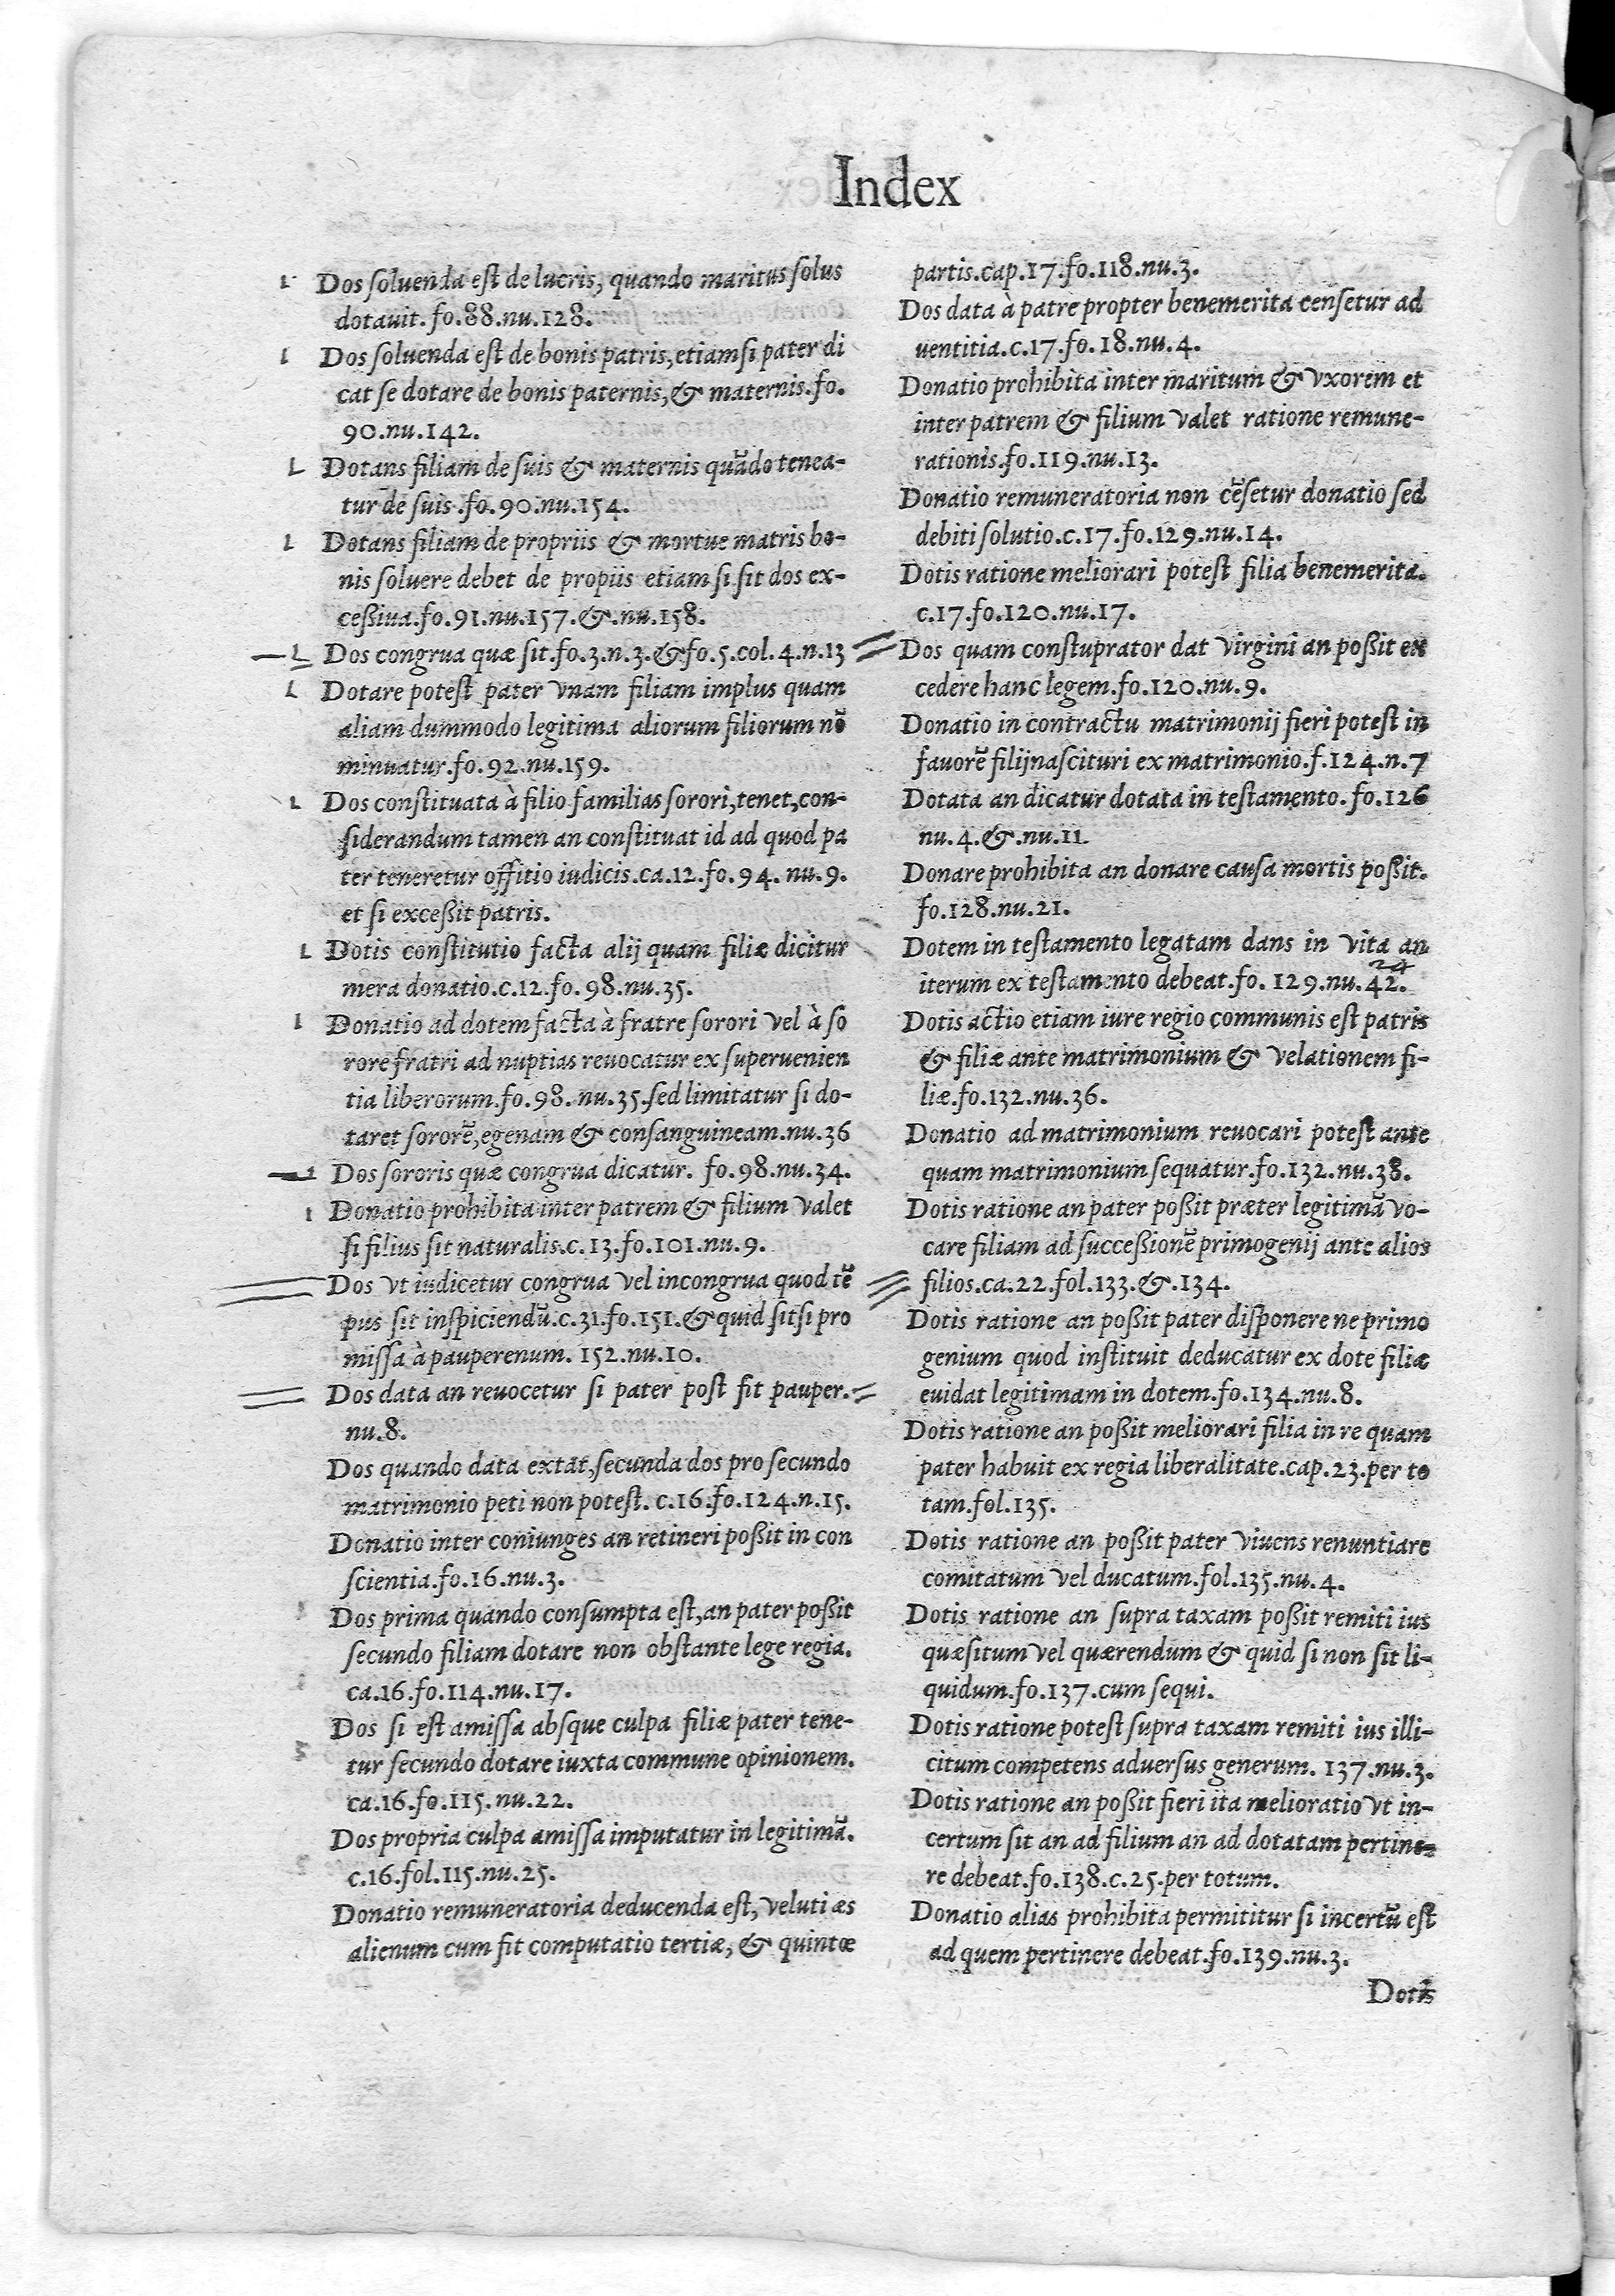 Index
Dos soluenda est de lucris, quando maritus solus
dotauit. fo.88.nu.128.
Dos soluenda est de bonis patris, etiam si pater di
cat se dotare de bonis paternis, & maternis.fo.
90.nu.142.
Dotans filiam de suis & maternis quãdo tenea-
tur de suis.fo.90.nu.154.
Dotans filiam de propriis & mortue matris bo-
nis soluere debet de propiis etiam si sit dos ex-
cessiua.fo.91.nu.157.&.nu.158.
Dos congrua quæ sit.fo.3.n.3.&.fo.5.col.4.n.13
Dotare potest pater vnam filiam implus quam
aliam dummodo legitima aliorum filiorum nõ
minuatur.fo.92.nu.159.
Dos constituata à filio familias sorori, tenet, con-
siderandum tamen an constituat id ad quod pa
ter teneretur offitio iudicis.ca.12.fo.94. nu.9.
et si excessit patris.
Dotis constitutio facta alij quam filiæ dicitur
mera donatio.c.12.fo.98.nu.35.
Donatio ad dotem facta à fratre sorori vel à so
rore fratri ad nuptias reuocatur ex superuenien
tia liberorum.fo.98.nu.35.sed limitatur si do-
taret sororẽ, egenam & consanguineam.nu.36
Dos sororis quæ congrua dicatur. fo.98.nu.34.
Donatio prohibita inter patrem & filium valet
si filius sit naturalis.c.13.fo.101.nu.9.
Dos vt iudicetur congrua vel incongrua quod tẽ
pus sit inspiciendũ.c.31.fo.151.& quid sit si pro
missa à pauperenum. 152.nu.10.
Dos data an reuocetur si pater post fit pauper.
nu.8.
Dos quando data extat, secunda dos pro secundo
matrimonio peti non potest. c.16.fo.124.n.15.
Donatio inter coniunges an retineri possit in con
scientia.fo.16.nu.3.
Dos prima quando consumpta est, an pater possit
secundo filiam dotare non obstante lege regia.
ca.16.fo.114.nu.17.
Dos si est amissa absque culpa filiæ pater tene-
tur secundo dotare iuxta commune opinionem.
ca.16.fo.115.nu.22.
Dos propria culpa amissa imputatur in legitimã.
c.16.fol.115.nu.25.
Donatio remuneratoria deducenda est, veluti æs
alienum cum fit computatio tertiæ, & quintœ
partis.cap.17.fo.118.nu.3.
Dos data à patre propter benemerita censetur ad
uentitia.c.17.fo.18.nu.4.
Donatio prohibita inter maritum & vxorem et
inter patrem & filium valet ratione remune-
rationis.fo.119.nu.13.
Donatio remuneratoria non cẽsetur donatio sed
debiti solutio.c.17.fo.129.nu.14.
Dotis ratione meliorari potest filia benemerita.
c.17.fo.120.nu.17.
Dos quam constuprator dat virgini an possit ex
cedere hanc legem.fo.120.nu.9.
Donatio in contractu matrimonij fieri potest in
fauorẽ filij nascituri ex matrimonio.f.124.n.7
Dotata an dicatur dotata in testamento. fo.126
nu.4.&.nu.11.
Donare prohibita an donare causa mortis possit.
fo.128.nu.21.
Dotem in testamento legatam dans in vita an
iterum ex testamento debeat.fo. 129.nu.42.
Dotis actio etiam iure regio communis est patris
& filiæ ante matrimonium & velationem fi-
liæ.fo.132.nu.36.
Donatio ad matrimonium reuocari potest ante
quam matrimonium sequatur.fo.132.nu.38.
Dotis ratione an pater possit præter legitimã vo-
care filiam ad successionẽ primogenij ante alios
filios.ca.22.fol.133.&.134.
Dotis ratione an possit pater disponere ne primo
genium quod instituit deducatur ex dote filiæ
euidat legitimam in dotem.fo.134.nu.8.
Dotis ratione an possit meliorari filia in re quam
pater habuit ex regia liberalitate.cap.23.per to
tam.fol.135.
Dotis ratione an possit pater viuens renuntiare
comitatum vel ducatum.fol.135.nu.4.
Dotis ratione an supra taxam possit remiti ius
quæsitum vel quærendum & quid si non sit li-
quidum.fo.137.cum sequi.
Dotis ratione potest supra taxam remiti ius illi-
citum competens aduersus generum. 137.nu.3.
Dotis ratione an possit fieri ita melioratio vt in-
certum sit an ad filium an ad dotatam pertine-
re debeat.fo.138.c.25.per totum.
Donatio alias prohibita permititur si incertũ est
ad quem pertinere debeat.fo.139.nu.3.
Dotis